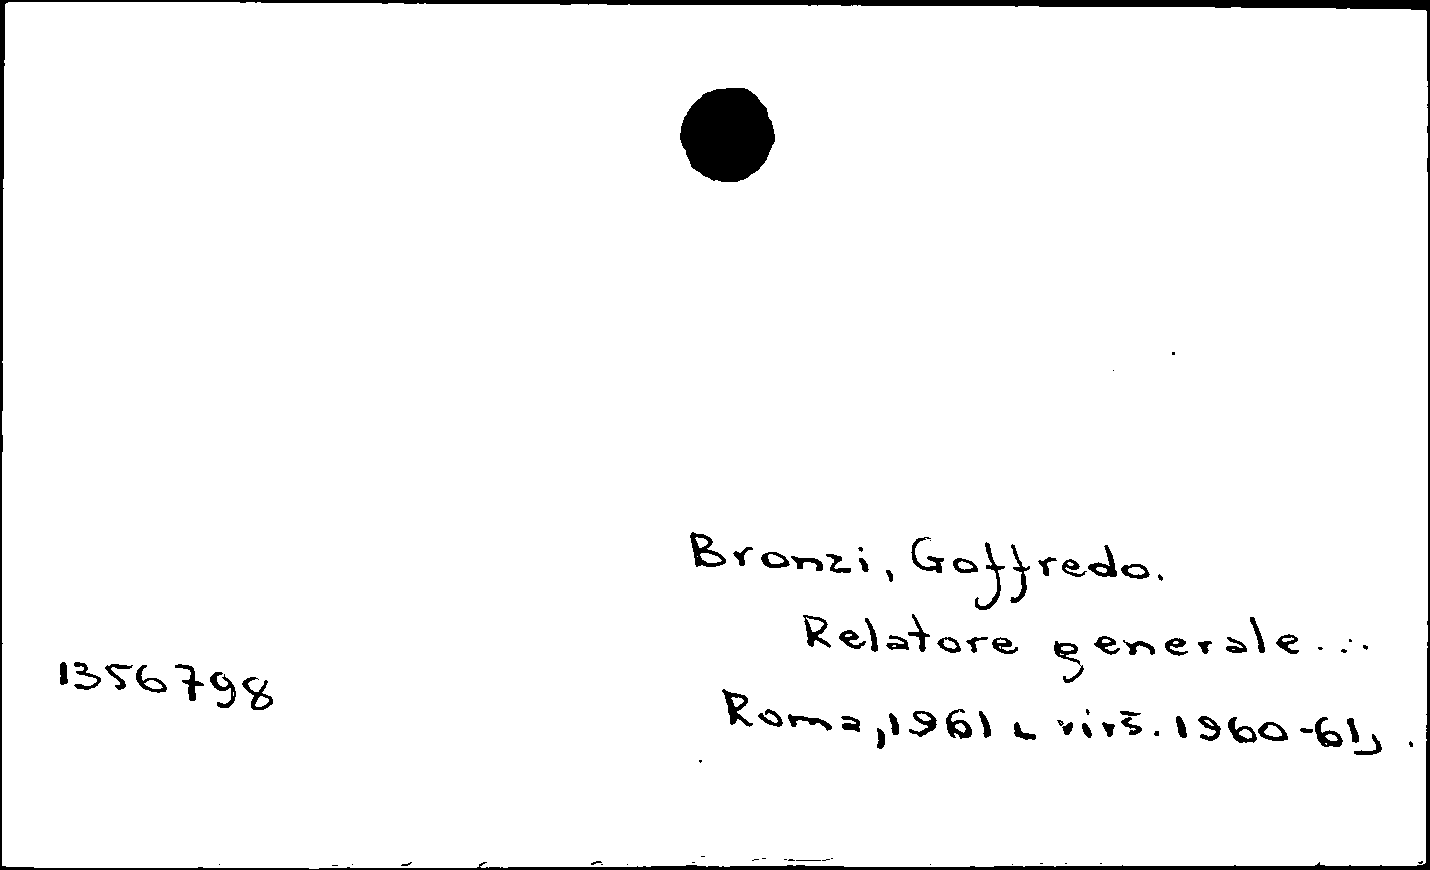 Bronzi, Goffredo.
Relatore generale...
1356798
Roma, 1961 [virš. 1960-61].